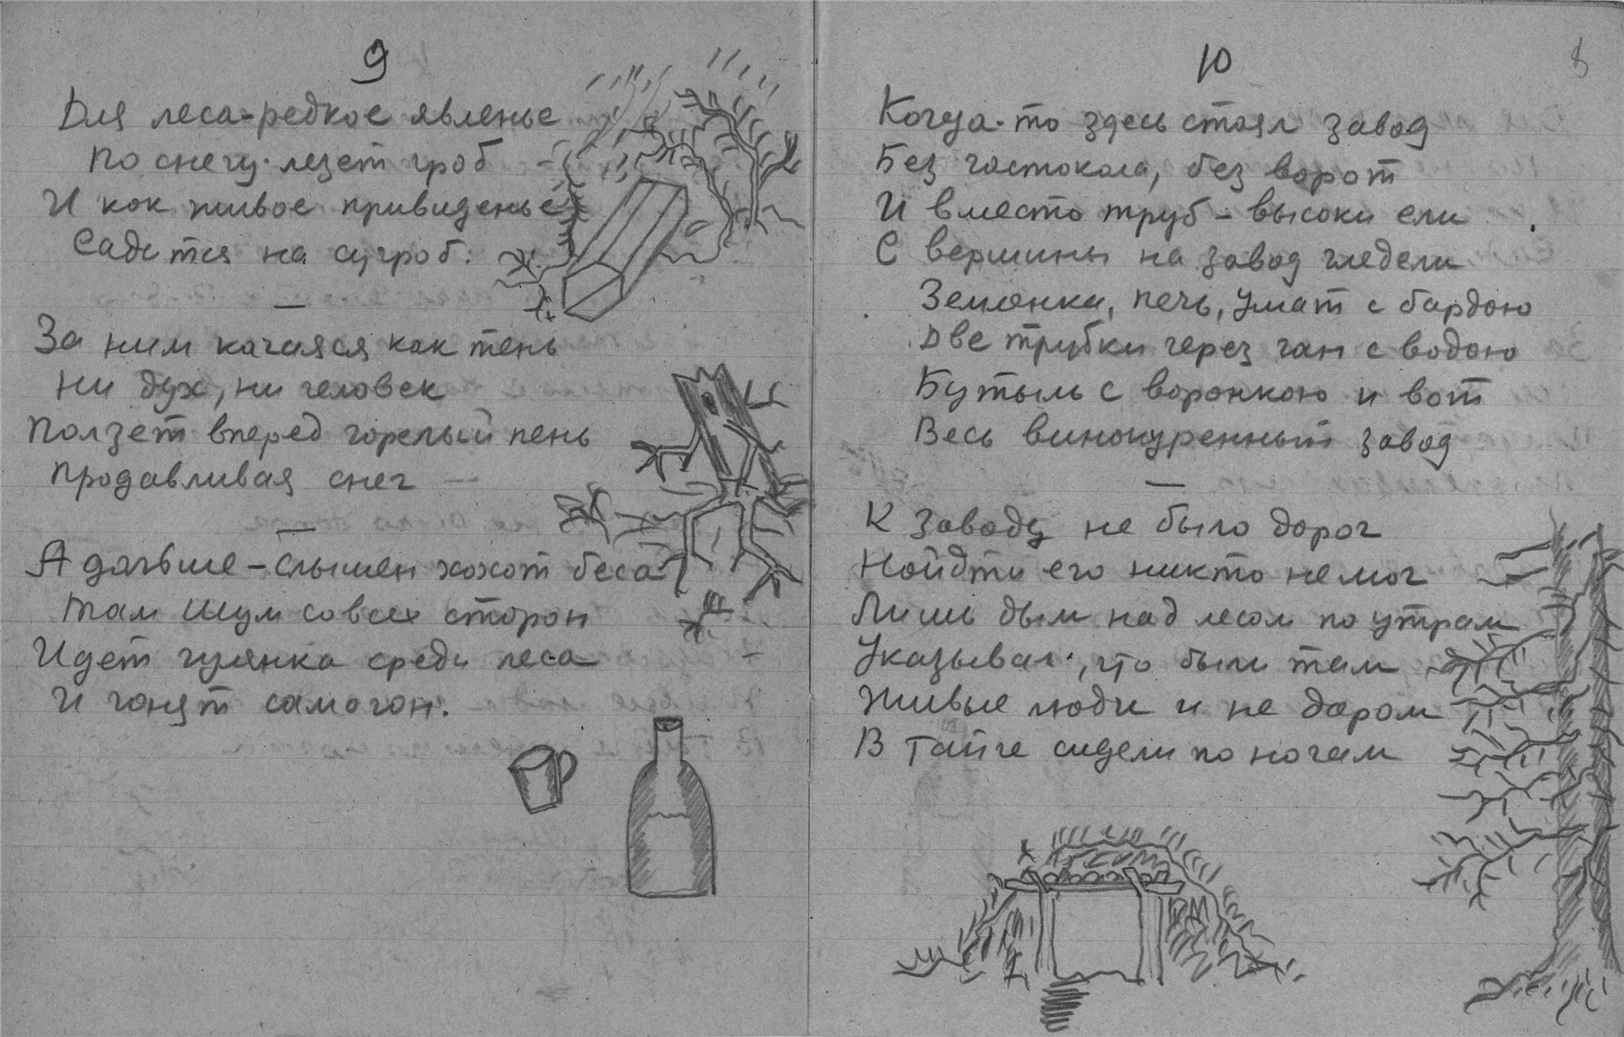 9
Для леса-редкое явленье
По снегу лезет гроб -
И как живое привиденье
Садится на сугроб.
—
За ним качаяся как тень
Ни дух, ни человек
Ползет вперед горелый пень
Продавливая снег —
—
А дальше - слышен хохот беса
Там шум со всех сторон
Идет гулянка среди леса —
И гонят самогон.
10
8
Когда-то здесь стоял завод
Без частокола, без ворот
И вместо труб - высоки ели
С вершины на завод гледели
Землянка, печь, ушат с бардою
Две трубки через чан с водою
Бутыль с воронкою и вот
Весь винокуренный завод
—
К заводу не было дорог
Найдти его никто не мог
Лишь дым над лесом по утрам
Указывал, что были там
Живые люди и не даром
В тайге сидели по ночам